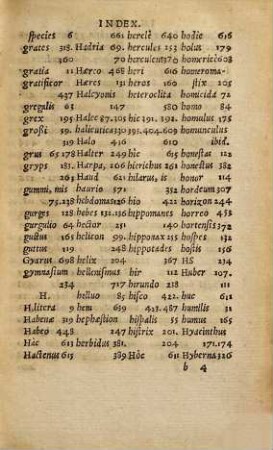 INDEX.
species 6 661 herclè 640 hodie 616
grates 318. Hadria 69. hercules 253 holus 179
360 70 herculenti 70 homerici 608
gratia 11 Hæreo 468 heri 616 homeroma-
gratificor Hæres 131 heros 160 stix 205
437 Halcyonis heteroclita homicida 72
gregalis 63 247 580 homo 84
grex 195 Halec 87.305 hic 191. 192. homulus 175
grossi 59. halieutica 223 395.404.609 homunculus
319 Halo 319 ibid.
grus 65.178 Halter 249 hic honestas 122
gryps 181. Harpa, 106 hierichus 261 honestus 382
263 Haud 261 hilaris, is honor 304
gummi, mis haurio 571 302 hordeum 307
75.238 hebdomas 126 hio 422 horizon 244
gurges 128 hebes 131.136 hippomanes horreo 452
gurgulio 64 hector 241 100. hortensis 372
gustus 165 helicon 99. hipponax 235 hospes 132
guttur 119 248 hippotades hostis 156
Gyarus 698 helix 254 107 HS 234
gymnasium hellenismus hir 112 Huber 107.
234 717 hirundo 218 111
H. helluo 85 hisco 422. huc 611
H,litera 9 hem 619 463.487 humilis 31
Habenæ 319 hephæstion hispalis 55 humus 165
Habeo 448 247 histrix 201. Hyacinthus
Hac 611 herbidus 381. 204 171.174
Hactenus 615 389 Hôc 611 Hyberna 326
b 4